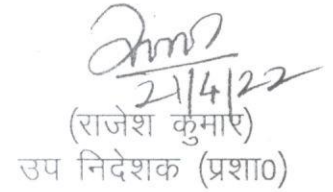 21/4/22
(राजेश कुमार)
उप निदेशक (प्रशा0)